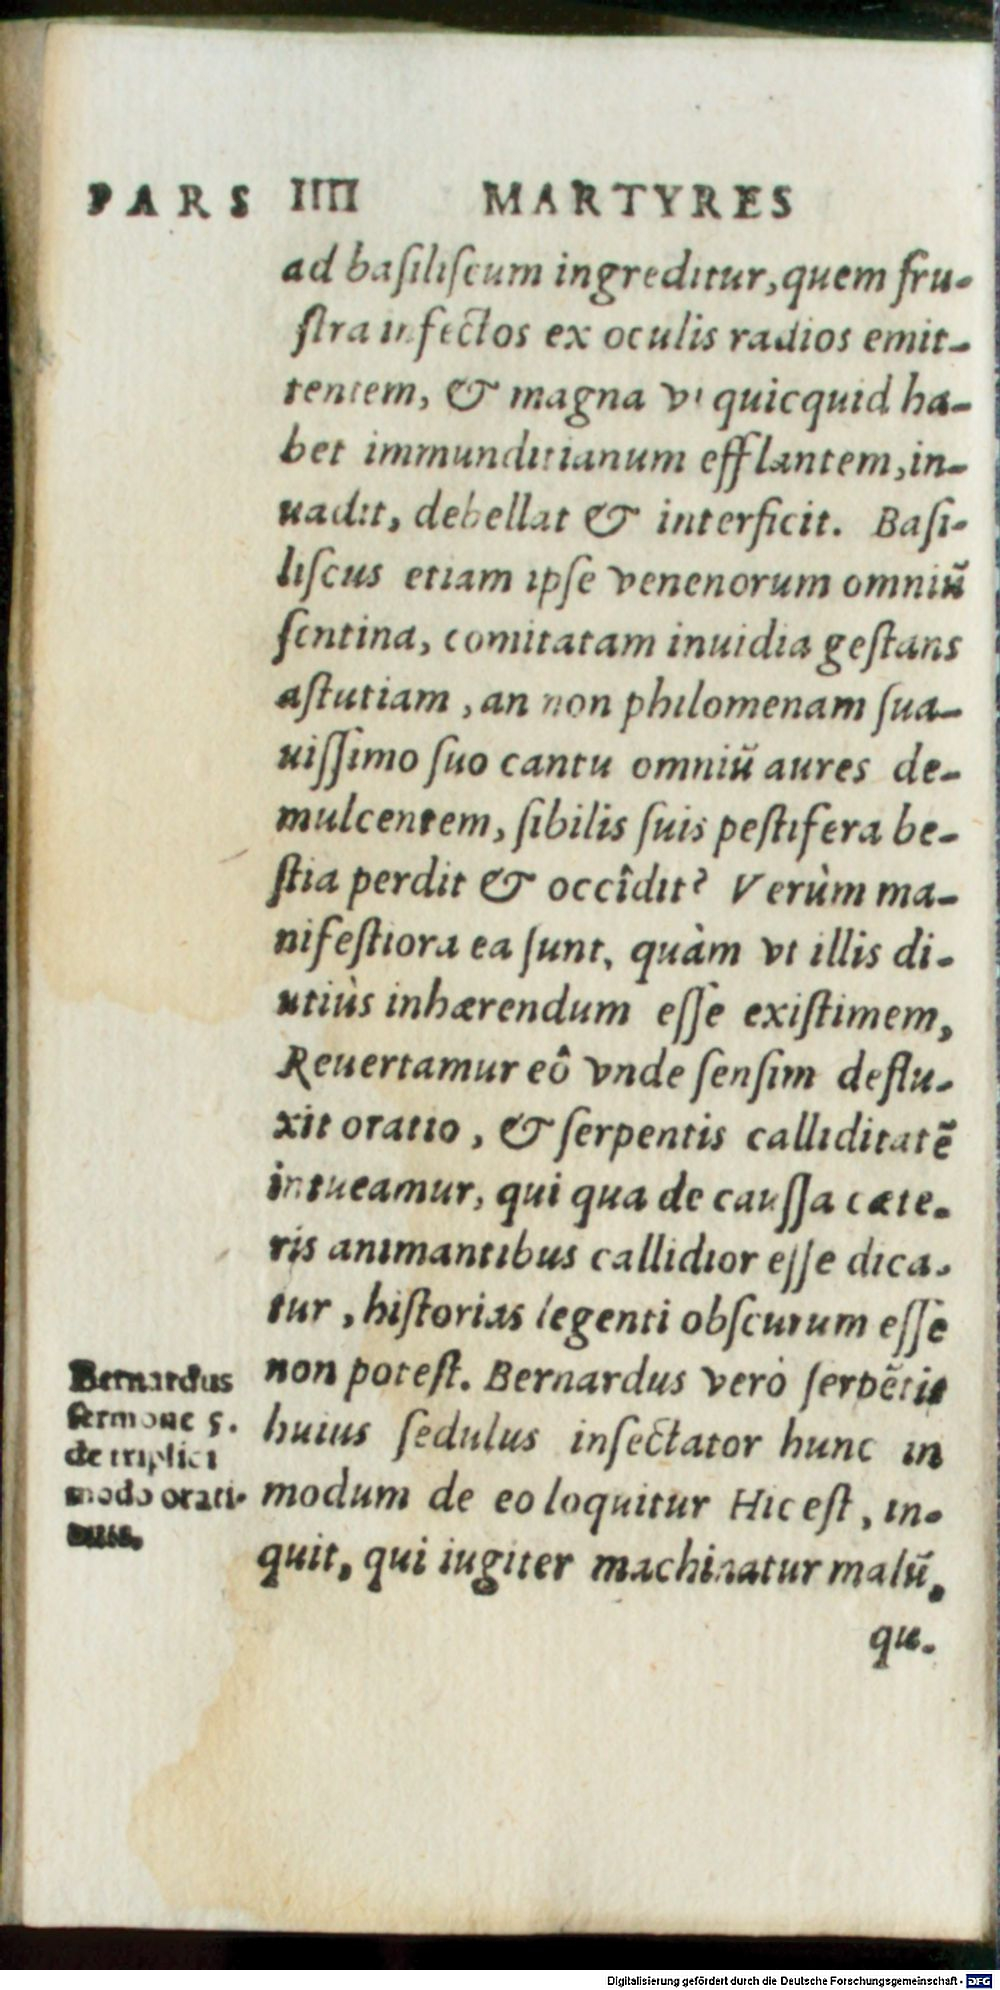 PARS IIII MARTYRES
ad baſiliſcum ingreditur, quem fru-
ſtra infectos ex oculis radios emit-
tentem, & magna vi quicquid ha-
bet immunditianum efflantem, in-
uadit, debellat & interficit. Baſi-
liſcus etiam ipſe venenorum omniũ
ſentina, comitatam inuidia geſtans
aſtutiam, an non philomenam ſua-
uiſſimo ſuo cantu omniũ aures de-
mulcentem, ſibilis ſuis peſtifera be-
ſtia perdit & occîdit? Verùm ma-
nifeſtiora ea ſunt, quàm vt illis di-
utiùs inhærendum eſſe exiſtimem,
Reuertamur eô vnde ſenſim deflu-
xit oratio, & ſerpentis calliditatẽ
intueamur, qui qua de cauſſa cæte-
ris animantibus callidior eſſe dica-
tur, hiſtorias legenti obſcurum eſſe
non poteſt. Bernardus verò ſerpẽtis
huius ſedulus inſectator hunc in
modum de eo loquitur Hic eſt, in-
quit, qui iugiter machinatur malũ,
qu-
Bernardus
ſermone 5.
de triplici
modo orati-